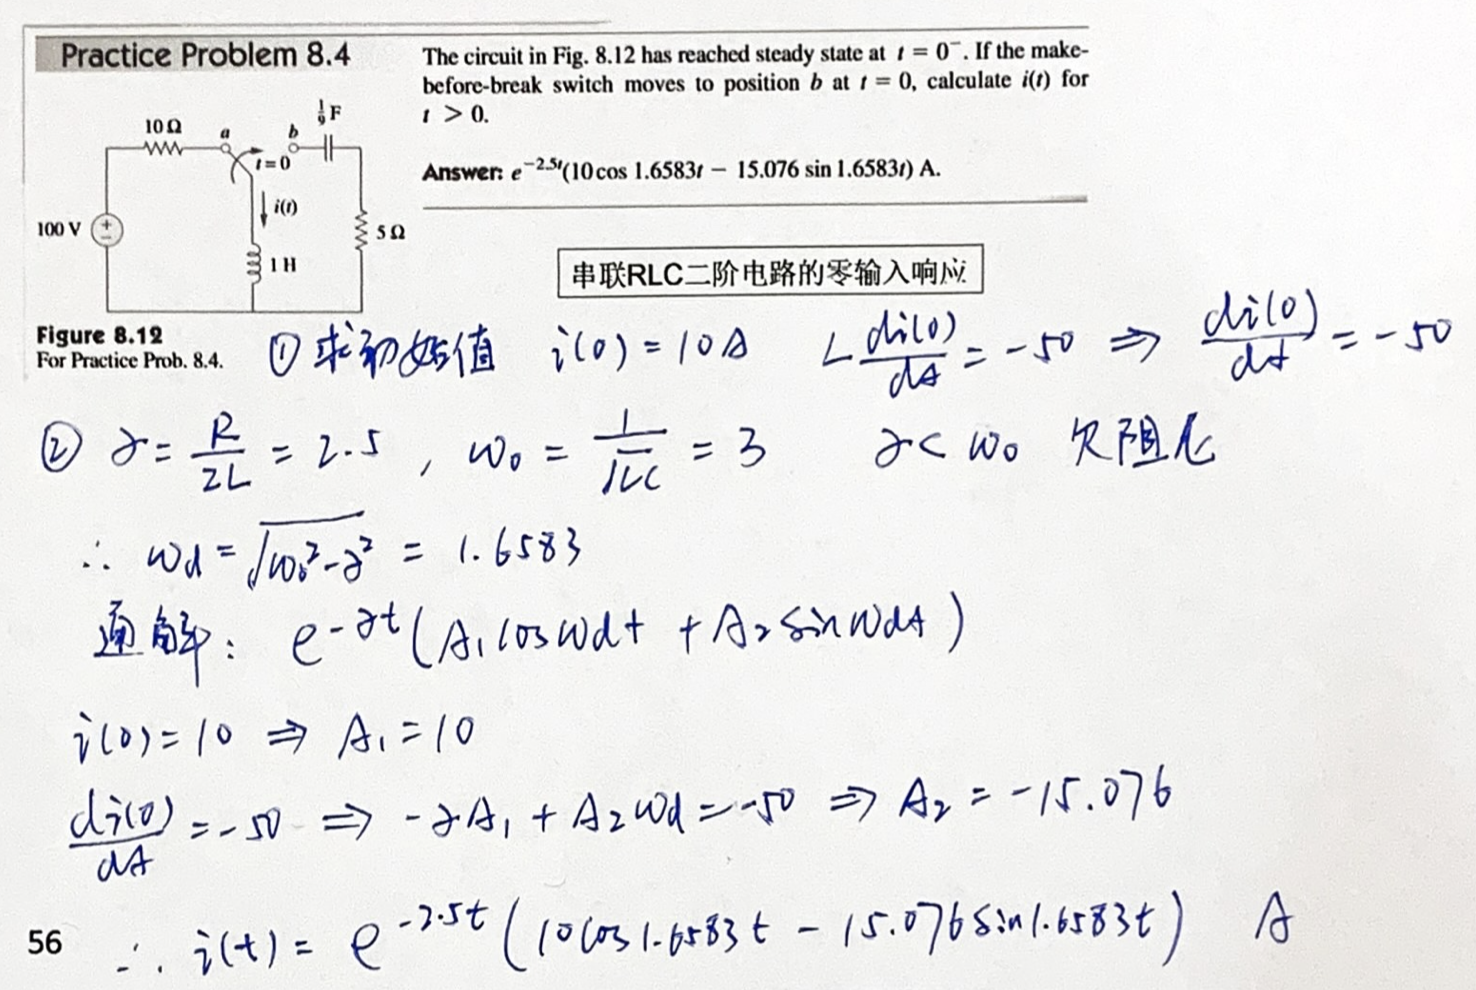 Practice Problem 8.4
The circuit in Fig. 8.12 has reached steady state at t = 0⁻. If the make-
before-break switch moves to position b at t = 0, calculate i(t) for
t > 0.
Answer: e^{-2.5t}(10 cos 1.6583t − 15.076 sin 1.6583t) A.
10 Ω
a
b
1/9 F
t = 0
i(t)
100 V
+
−
5 Ω
1 H
串联RLC二阶电路的零输入响应
Figure 8.12
For Practice Prob. 8.4.
① 求初始值 i(0) = 10A L di(0)/dt = -50 ⇒ di(0)/dt = -50
② α = R/2L = 2.5 , ω₀ = 1/√LC = 3 α < ω₀ 欠阻尼
∴ ωd = √ω₀²-α² = 1.6583
通解: e^{-αt}(A₁cosωdt + A₂sinωdt)
i(0) = 10 ⇒ A₁ = 10
di(0)/dt = -50 ⇒ -αA₁ + A₂ωd = -50 ⇒ A₂ = -15.076
∴ i(t) = e^{-2.5t}(10cos1.6583t - 15.076sin1.6583t) A
56